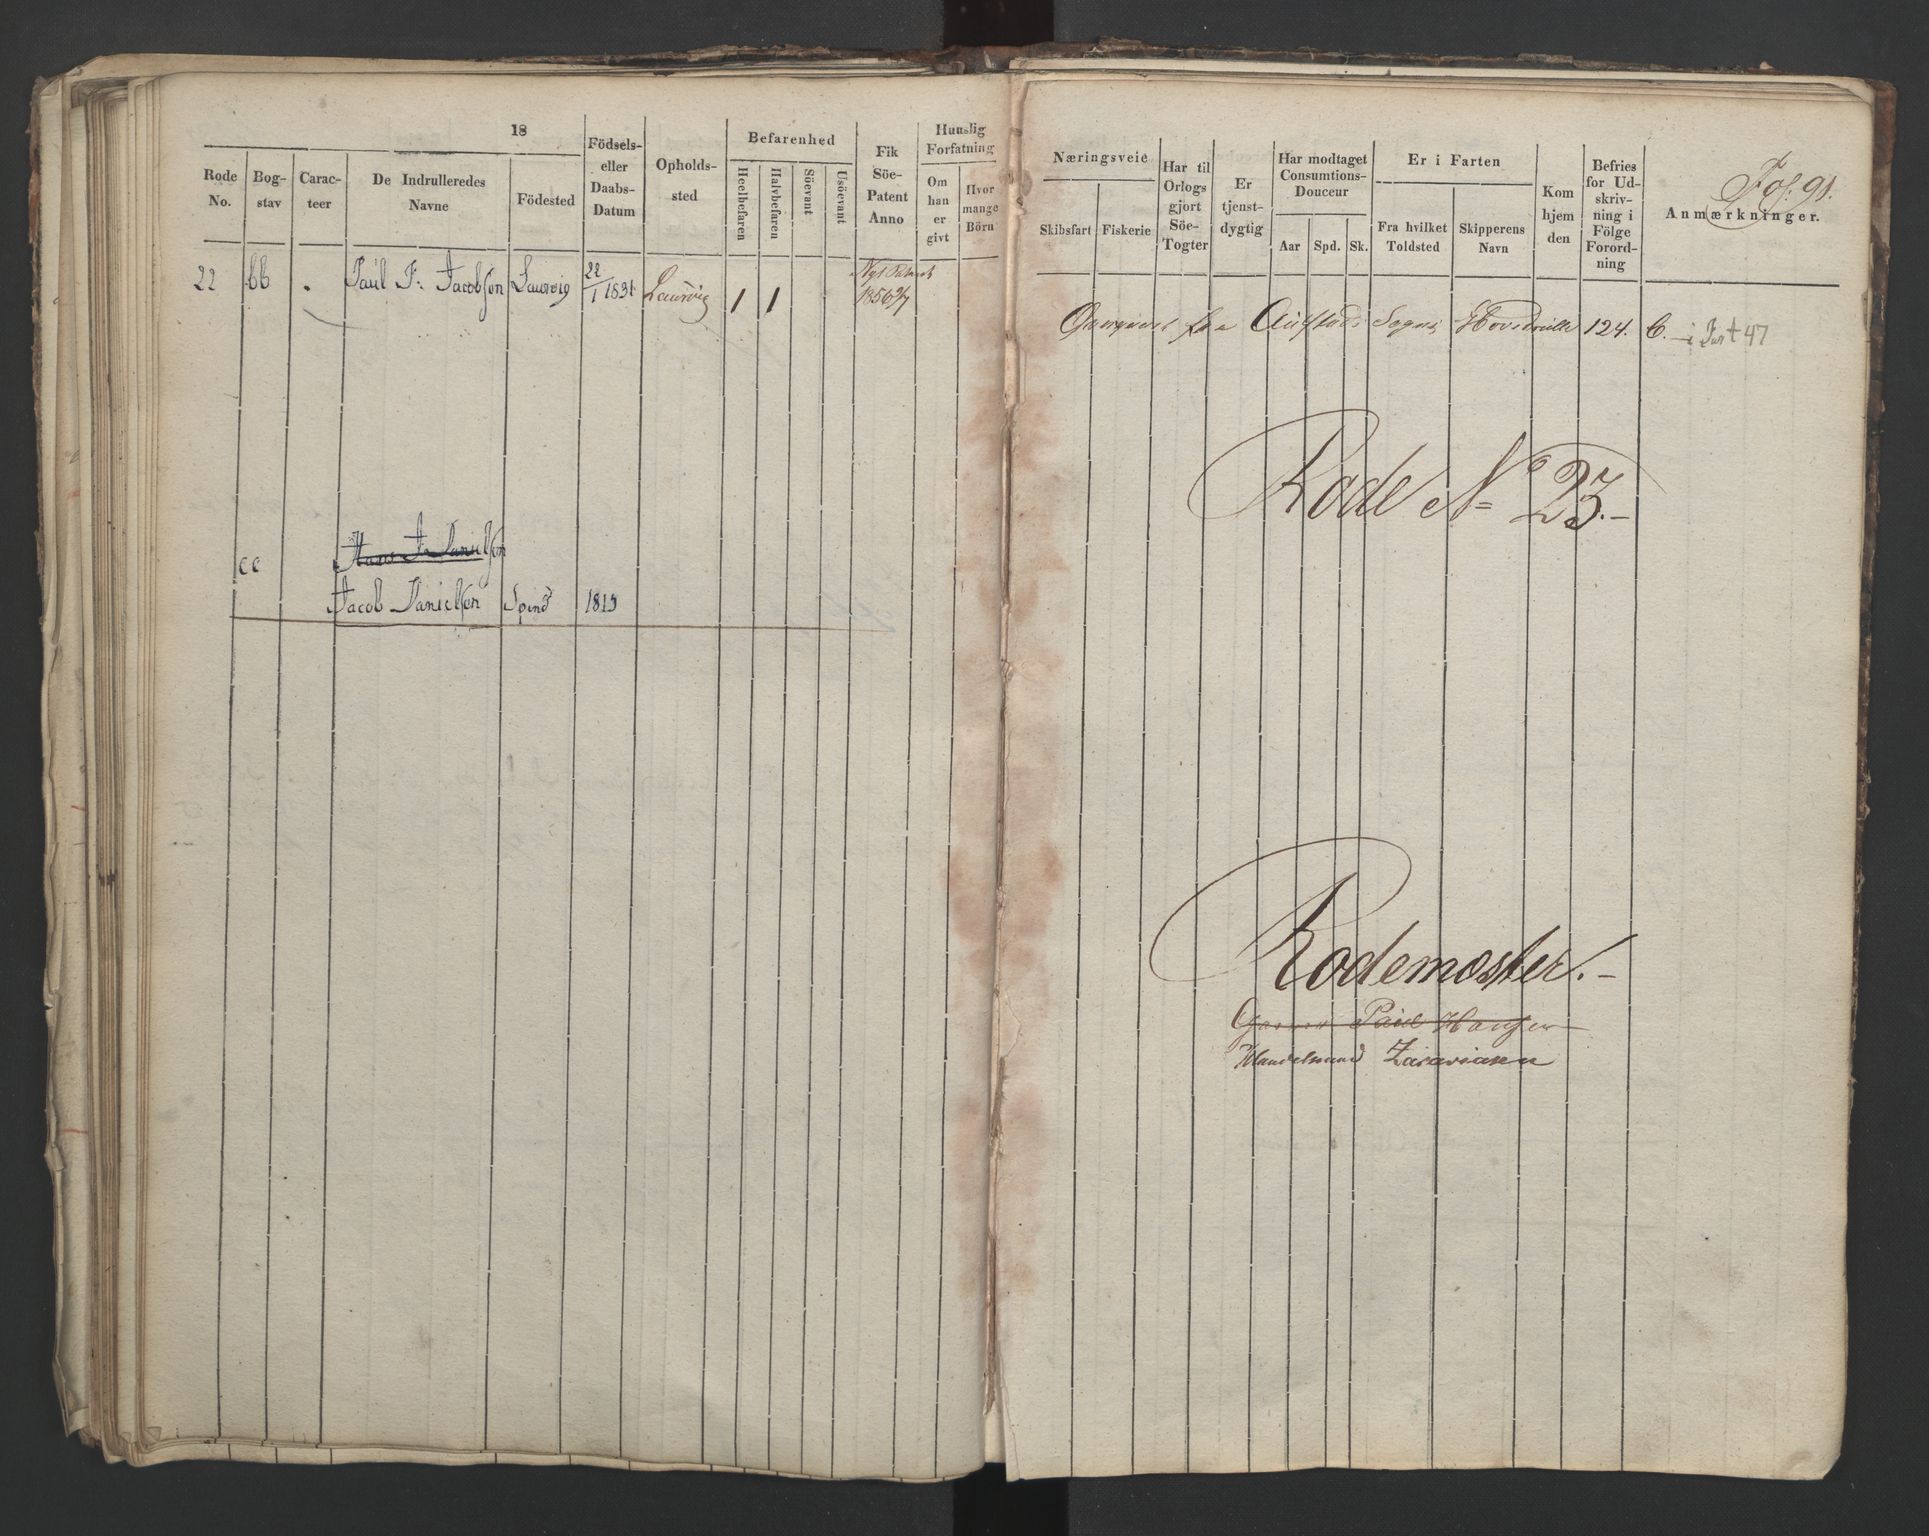 18
Rode No.
Bogstav
Caracteer
De Indrulleredes Navne
Födested
Födsels- eller Daabs-Datum
Opholds-sted
Befarenhed
Heelbefaren
Halvbefaren
Söevant
Usöevant
Fik Söe-Patent Anno
Huuslig Forfatning
Om han er givt
Hvor mange Börn
22 bb Paul F. Jacobsen Laurvig 22/1 1831 Laurvig 1 1 Nyt Patent 1856
cc Hans F. Danielsen
Jacob Danielsen Spind 1819
Næringsveie
Skibsfart
Fiskerie
Har til Orlogs gjort Söe-Togter
Er tjenst-dygtig
Har modtaget Consumtions-Douceur
Aar
Spd.
Sk.
Er i Farten
Fra hvilket Toldsted
Skipperens Navn
Kom hjem den
Befries for Ud-skriv-ning i Fölge Forord-ning
Fol: 91.
Anmærkninger.
fra Sogns Hovedrulle 124. C. i Fart 47
Rode No 23.-
Rodemester.-
Paul Hansen
Handelsmand Zacariasen